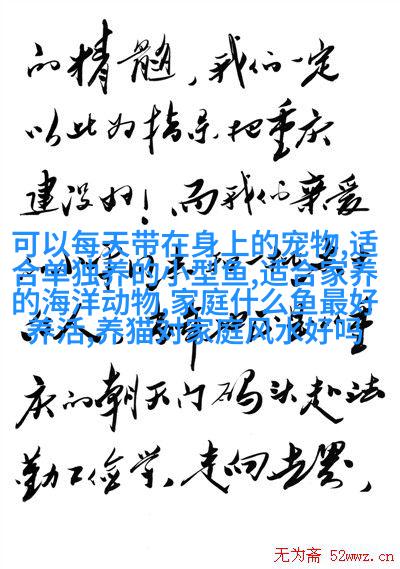 的精髓，我们一定
以此为指导把重庆
建设好！而我们亲爱
可以每天带在身上的宠物,适
合单独养的小型鱼,适合家养
的海洋动物,家庭什么鱼最好
养活,养猫对家庭风水好吗
庆的朝天门码头赴法
勤工俭学，走向世界，
无为斋 52wwz.cn